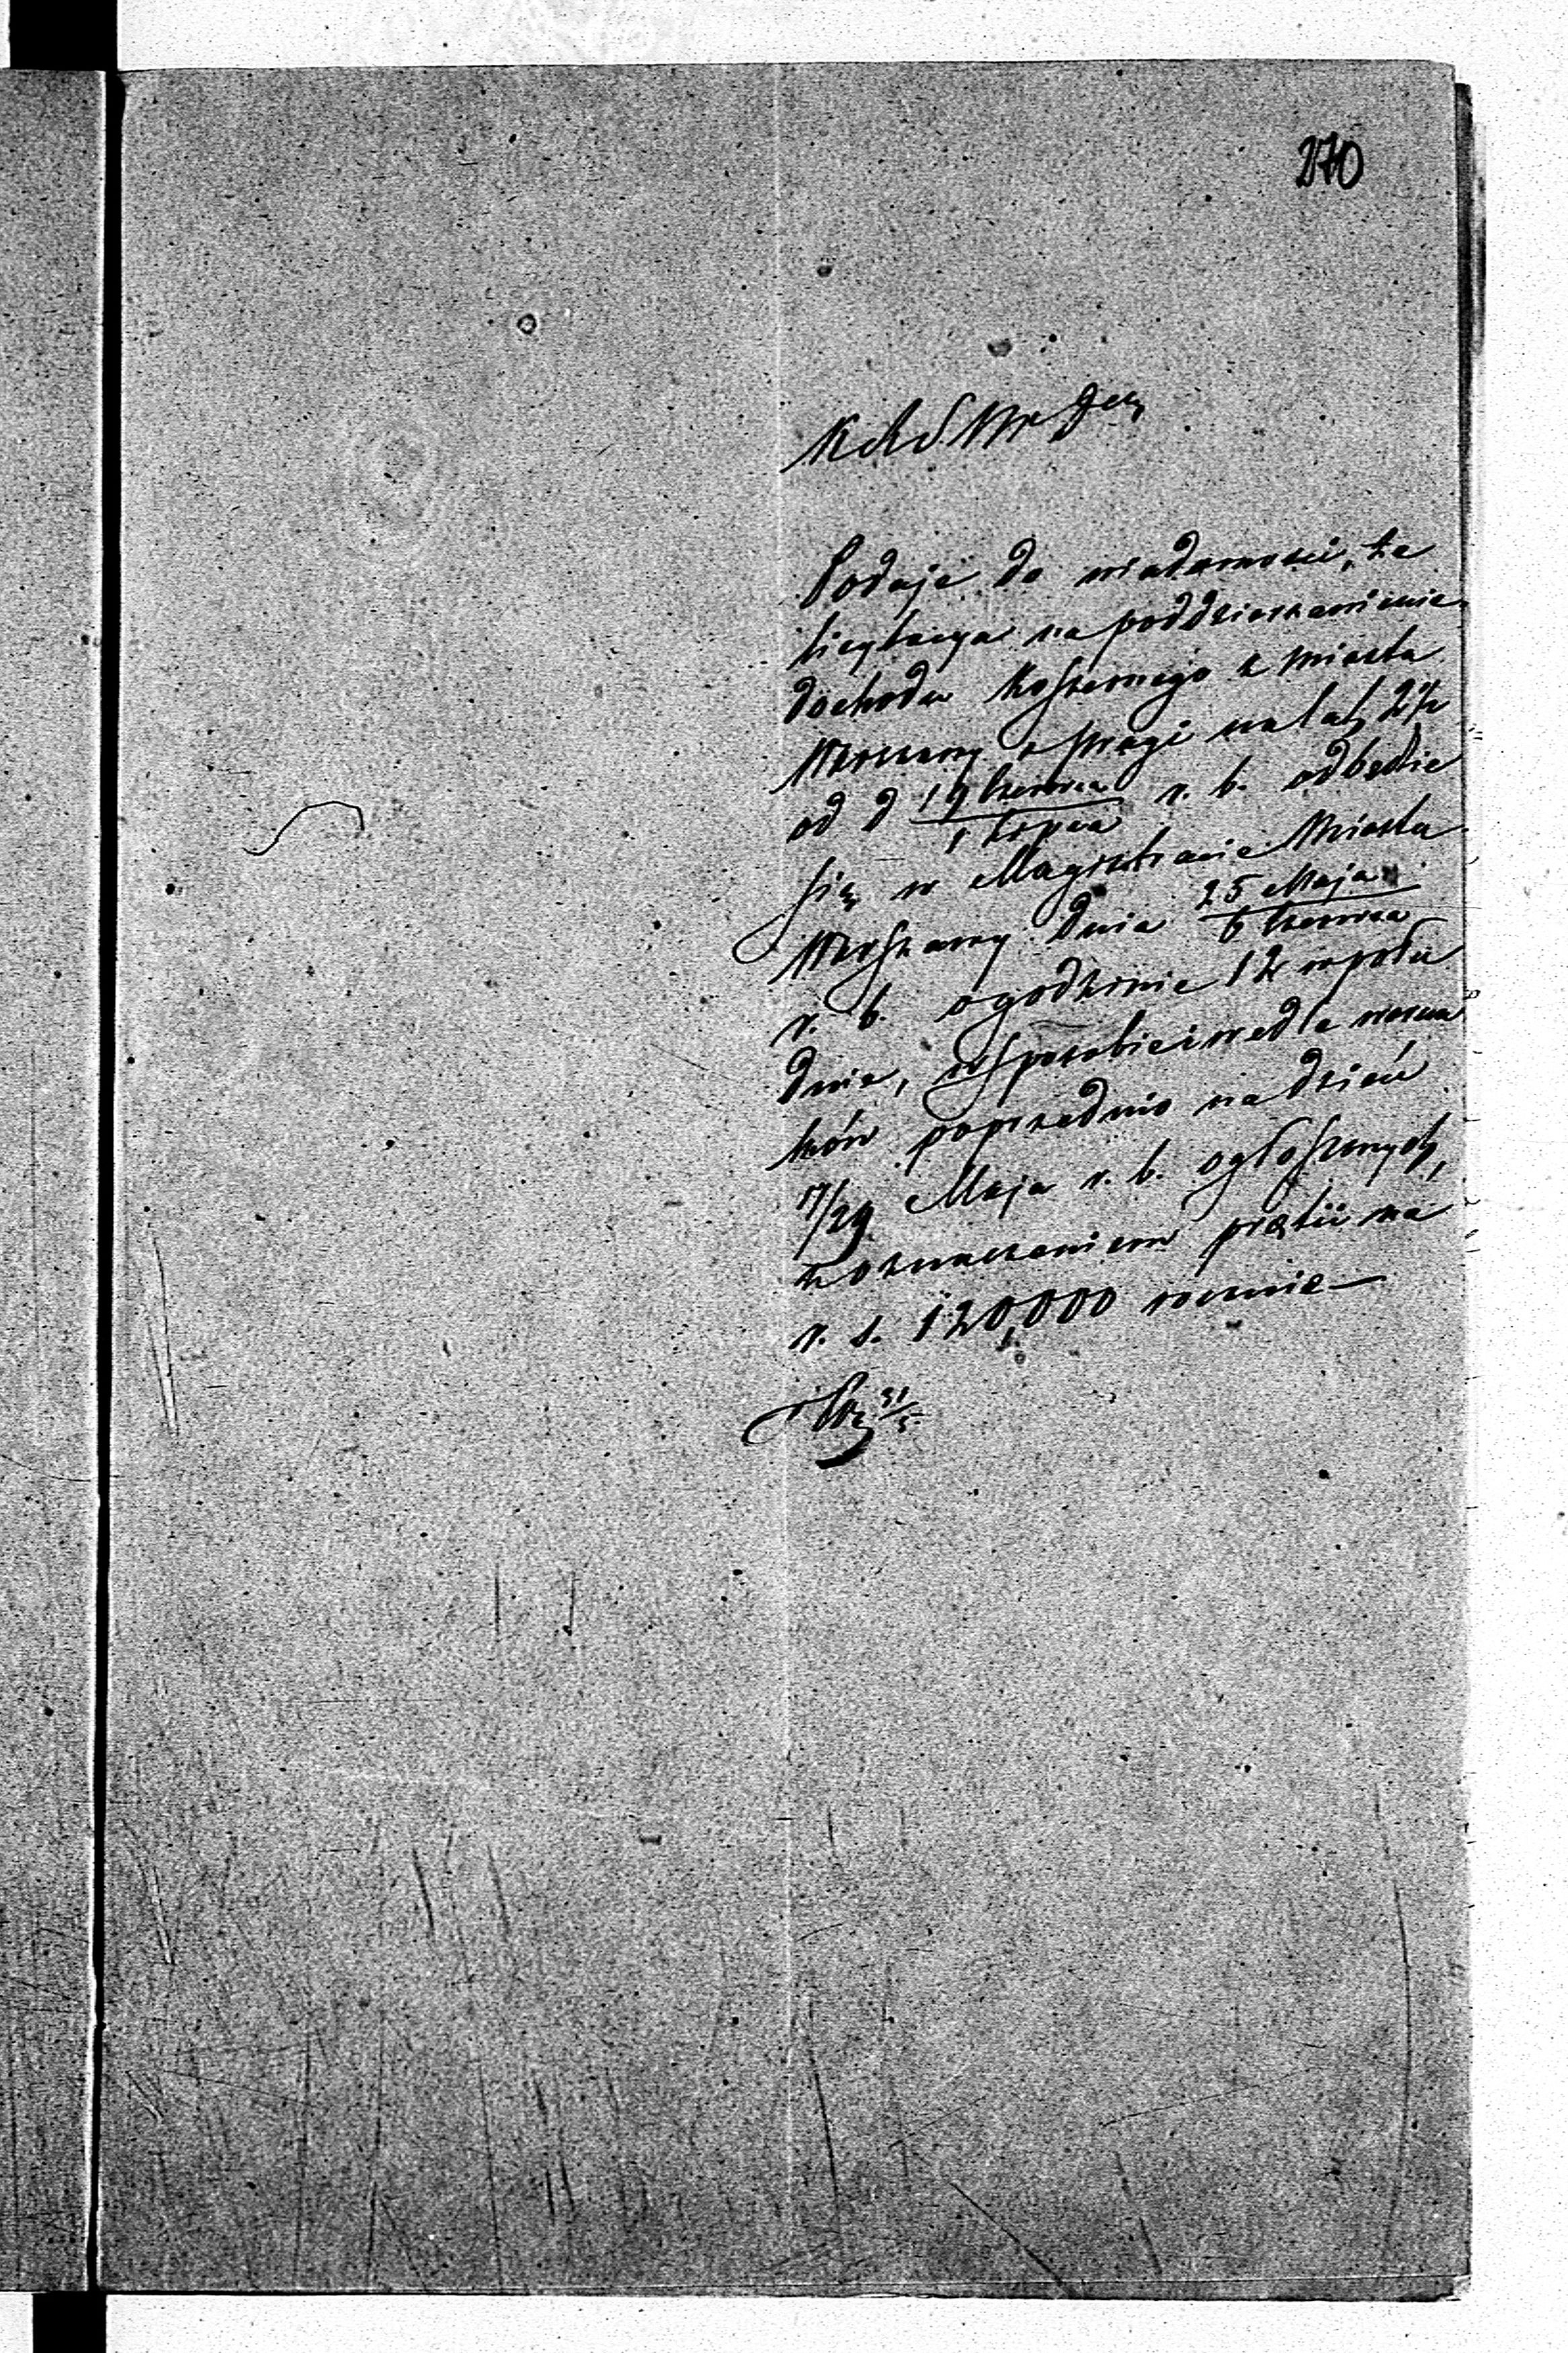 270
Podaje do wiadomości, że
licytacya na poddzierżawienie
dochodu koszernego z miasta
Warszawy i Pragi na lat 2 1/2
od d 19 Czerwca / 1 Lipca r. b. odbędzie
się w Magistracie Miasta
Warszawy dnia 25 Maja / 6 Czerwca
r. b. o godzinie 12 w połu
dnie, w sposobie i wedle warun
ków poprzednio na dzień
17/29 Maja r. b. ogłoszonych,
z oznaczeniem praetii na
r. s. 120,000 rocznie—
31/5